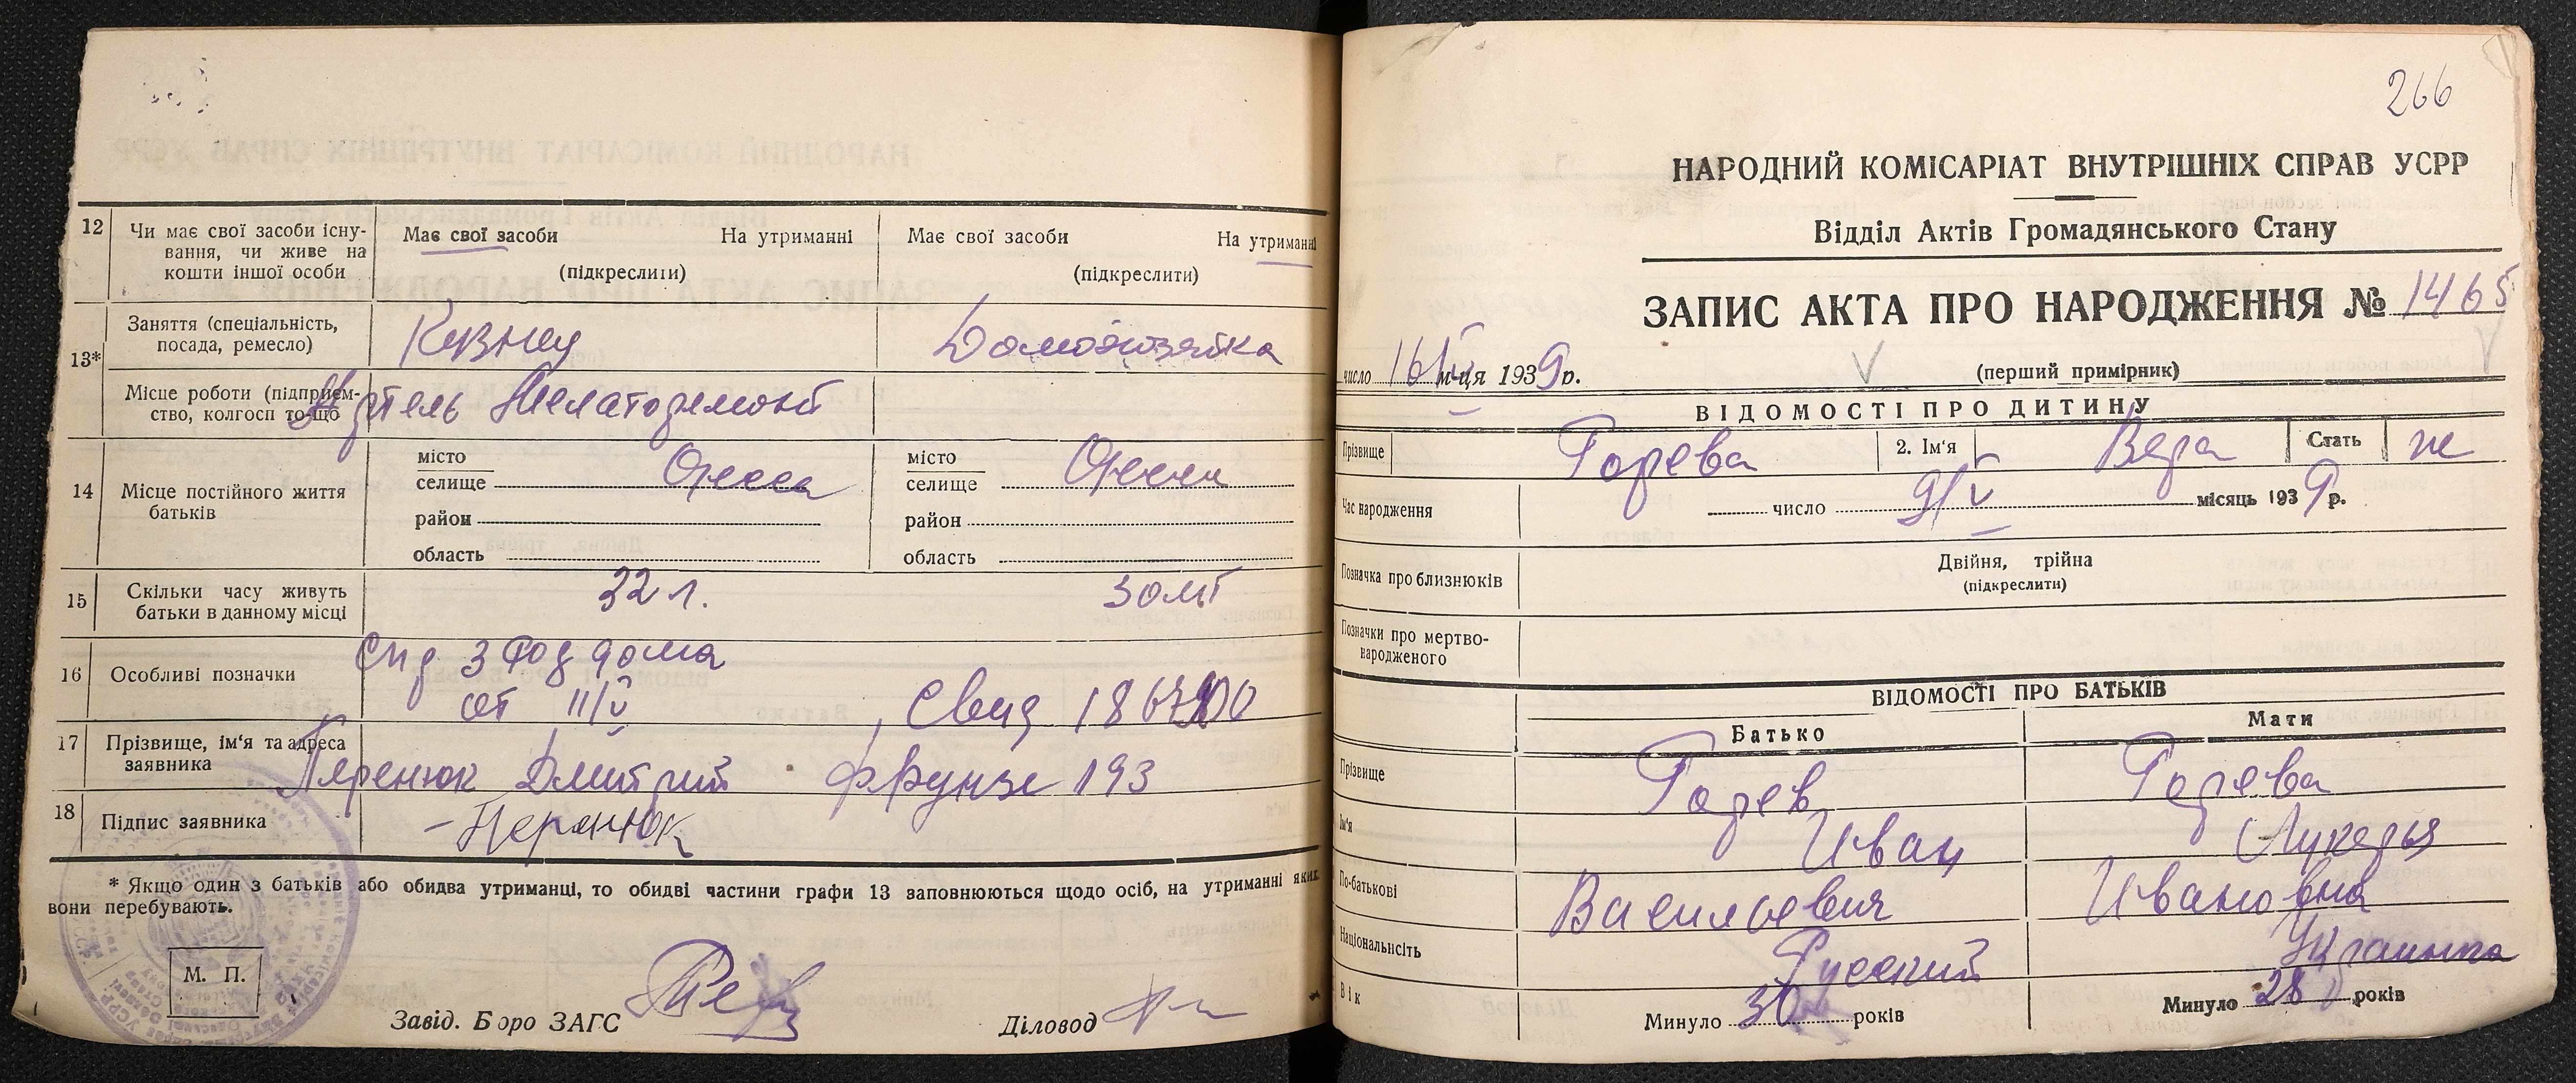 12 Чи має свої засоби існу-
вання, чи живе на
кошти іншої особи
Має свої засоби На утриманні
(підкреслити)
Має свої засоби На утриманні
(підкреслити)
13* Заняття (спеціальність,
посада, ремесло)
Кузнец Домохозяйка
Місце роботи (підприєм-
ство, колгосп то-що
Артель
14 Місце постійного життя
батьків
місто
селище Одесса
район
область
місто
селище Одесса
район
область
15 Скільки часу живуть
батьки в данному місці
32 л.
16 Особливі позначки
3 Род дома
от 11/V Свид
17 Прізвище, ім‘я та адреса
заявника
Дмитрий Фрунзе 193
18 Підпис заявника
* Якщо один з батьків або обидва утриманці, то обидві частини графи 13 заповнюються щодо осіб, на утриманні яких
вони перебувають.
М. П.
Завід. Бюро ЗАГС Діловод
266
НАРОДНИЙ КОМІСАРІАТ ВНУТРІШНІХ СПРАВ УСРР
Відділ Актів Громадянського Стану
ЗАПИС АКТА ПРО НАРОДЖЕННЯ № 1465
число 16/V м-ця 1939 р. (перший примірник)
ВІДОМОСТІ ПРО ДИТИНУ
Прізвище Горева 2. Ім‘я Вера Стать ж
Час народження число 9/V місяць 1939 р.
Позначка про близнюків
Двійня, трійна
(підкреслити)
Позначки про мертво-
народженого
ВІДОМОСТІ ПРО БАТЬКІВ
Батько Мати
Прізвище Горев Горева
Ім‘я Иван Лукерья
По-батькові Васильевич Ивановна
Національність Русский Украинка
Вік Минуло 30 років Минуло 28 років